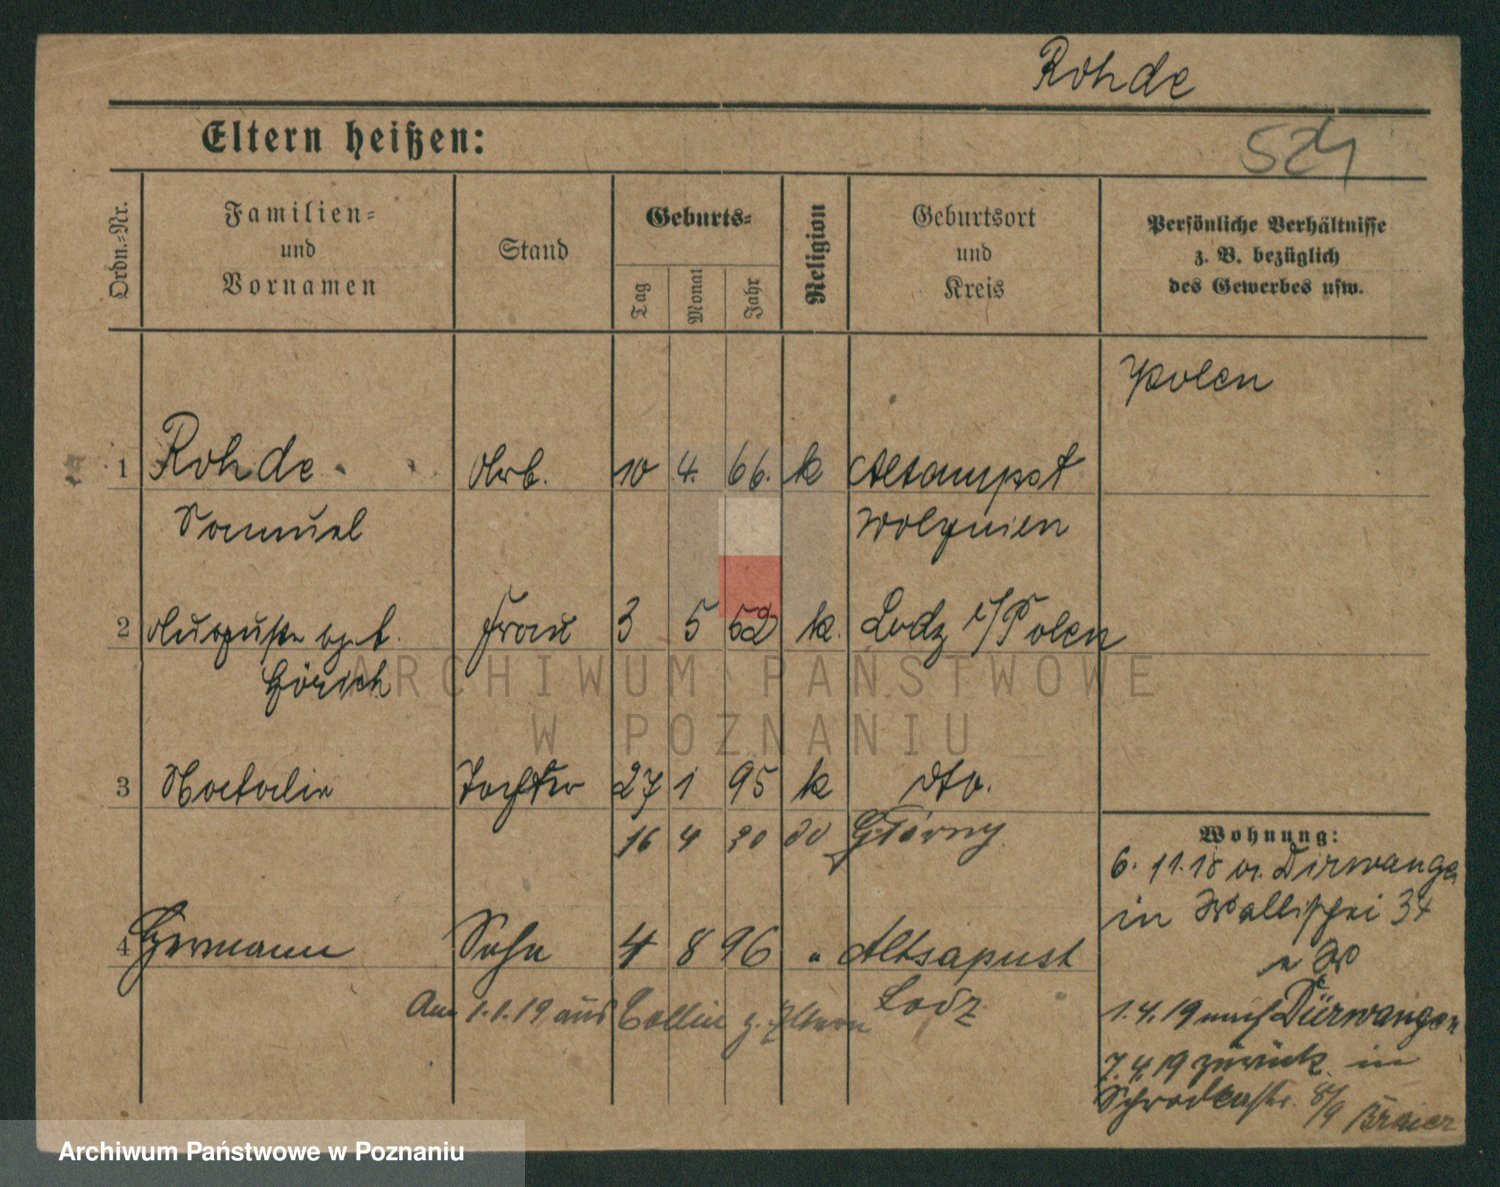 Rohde
524
Eltern heißen:
Ordn.-Nr.
Familien-
und
Vornamen
Stand
Geburts-
Tag
Monat
Jahr
Religion
Geburtsort
und
Kreis
Persönliche Verhältnisse
z. B. bezüglich
des Gewerbes usw.
Polen
1 Rohde Arb. 10 4. 66. k
Samuel Wolynien
2 Auguste geb. Frau 3 5 k. Lodz i/Polen
ARCHIWUM PAŃSTWOWE
W POZNANIU
3 Natalie Tochter 27 1 95 k dto.
16 4 20
Wohnung:
6. 11.18 Dirwangen
in Wallischei
4 Hermann Sohn 4 8 96 " Altsapust
Lodz
Am 1.1.19 aus z. Eltern
1.4.19 nach Dürwangen
7.4.19 zurück in
Schrodkastr. 8/9
Archiwum Państwowe w Poznaniu